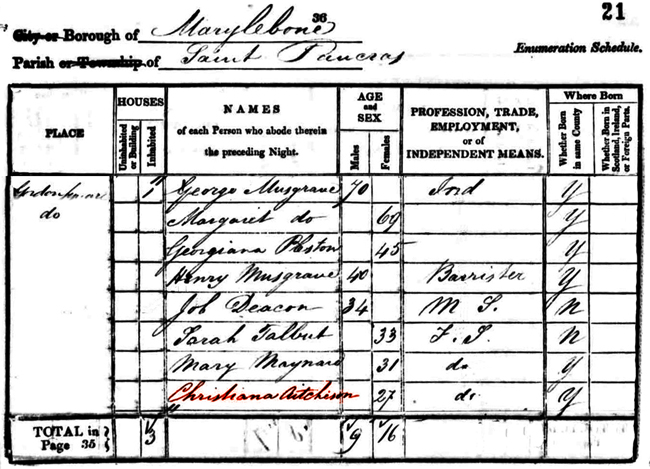 21
City or Borough of Marylebone 36
Enumeration Schedule.
Parish or Township of Saint Pancras
PLACE
HOUSES
Uninhabited or Building
Inhabited
NAMES
of each Person who abode therein the preceding Night.
AGE and SEX
Males
Females
PROFESSION, TRADE, EMPLOYMENT, or of INDEPENDENT MEANS.
Where Born
Whether Born in same County
Whether Born in Scotland, Ireland, or Foreign Parts.
Gordon Square 1 George Musgrave 70 Ind Y
do Margaret do 69 Y
Georgiana 45 Y
Henry Musgrave 40 Barrister Y
Job Deacon 34 M S. N
Sarah Talbut 33 F. S. N
Mary Maynard 31 do Y
Christiana Aitchison 27 do Y
TOTAL in Page 35 3 9 16